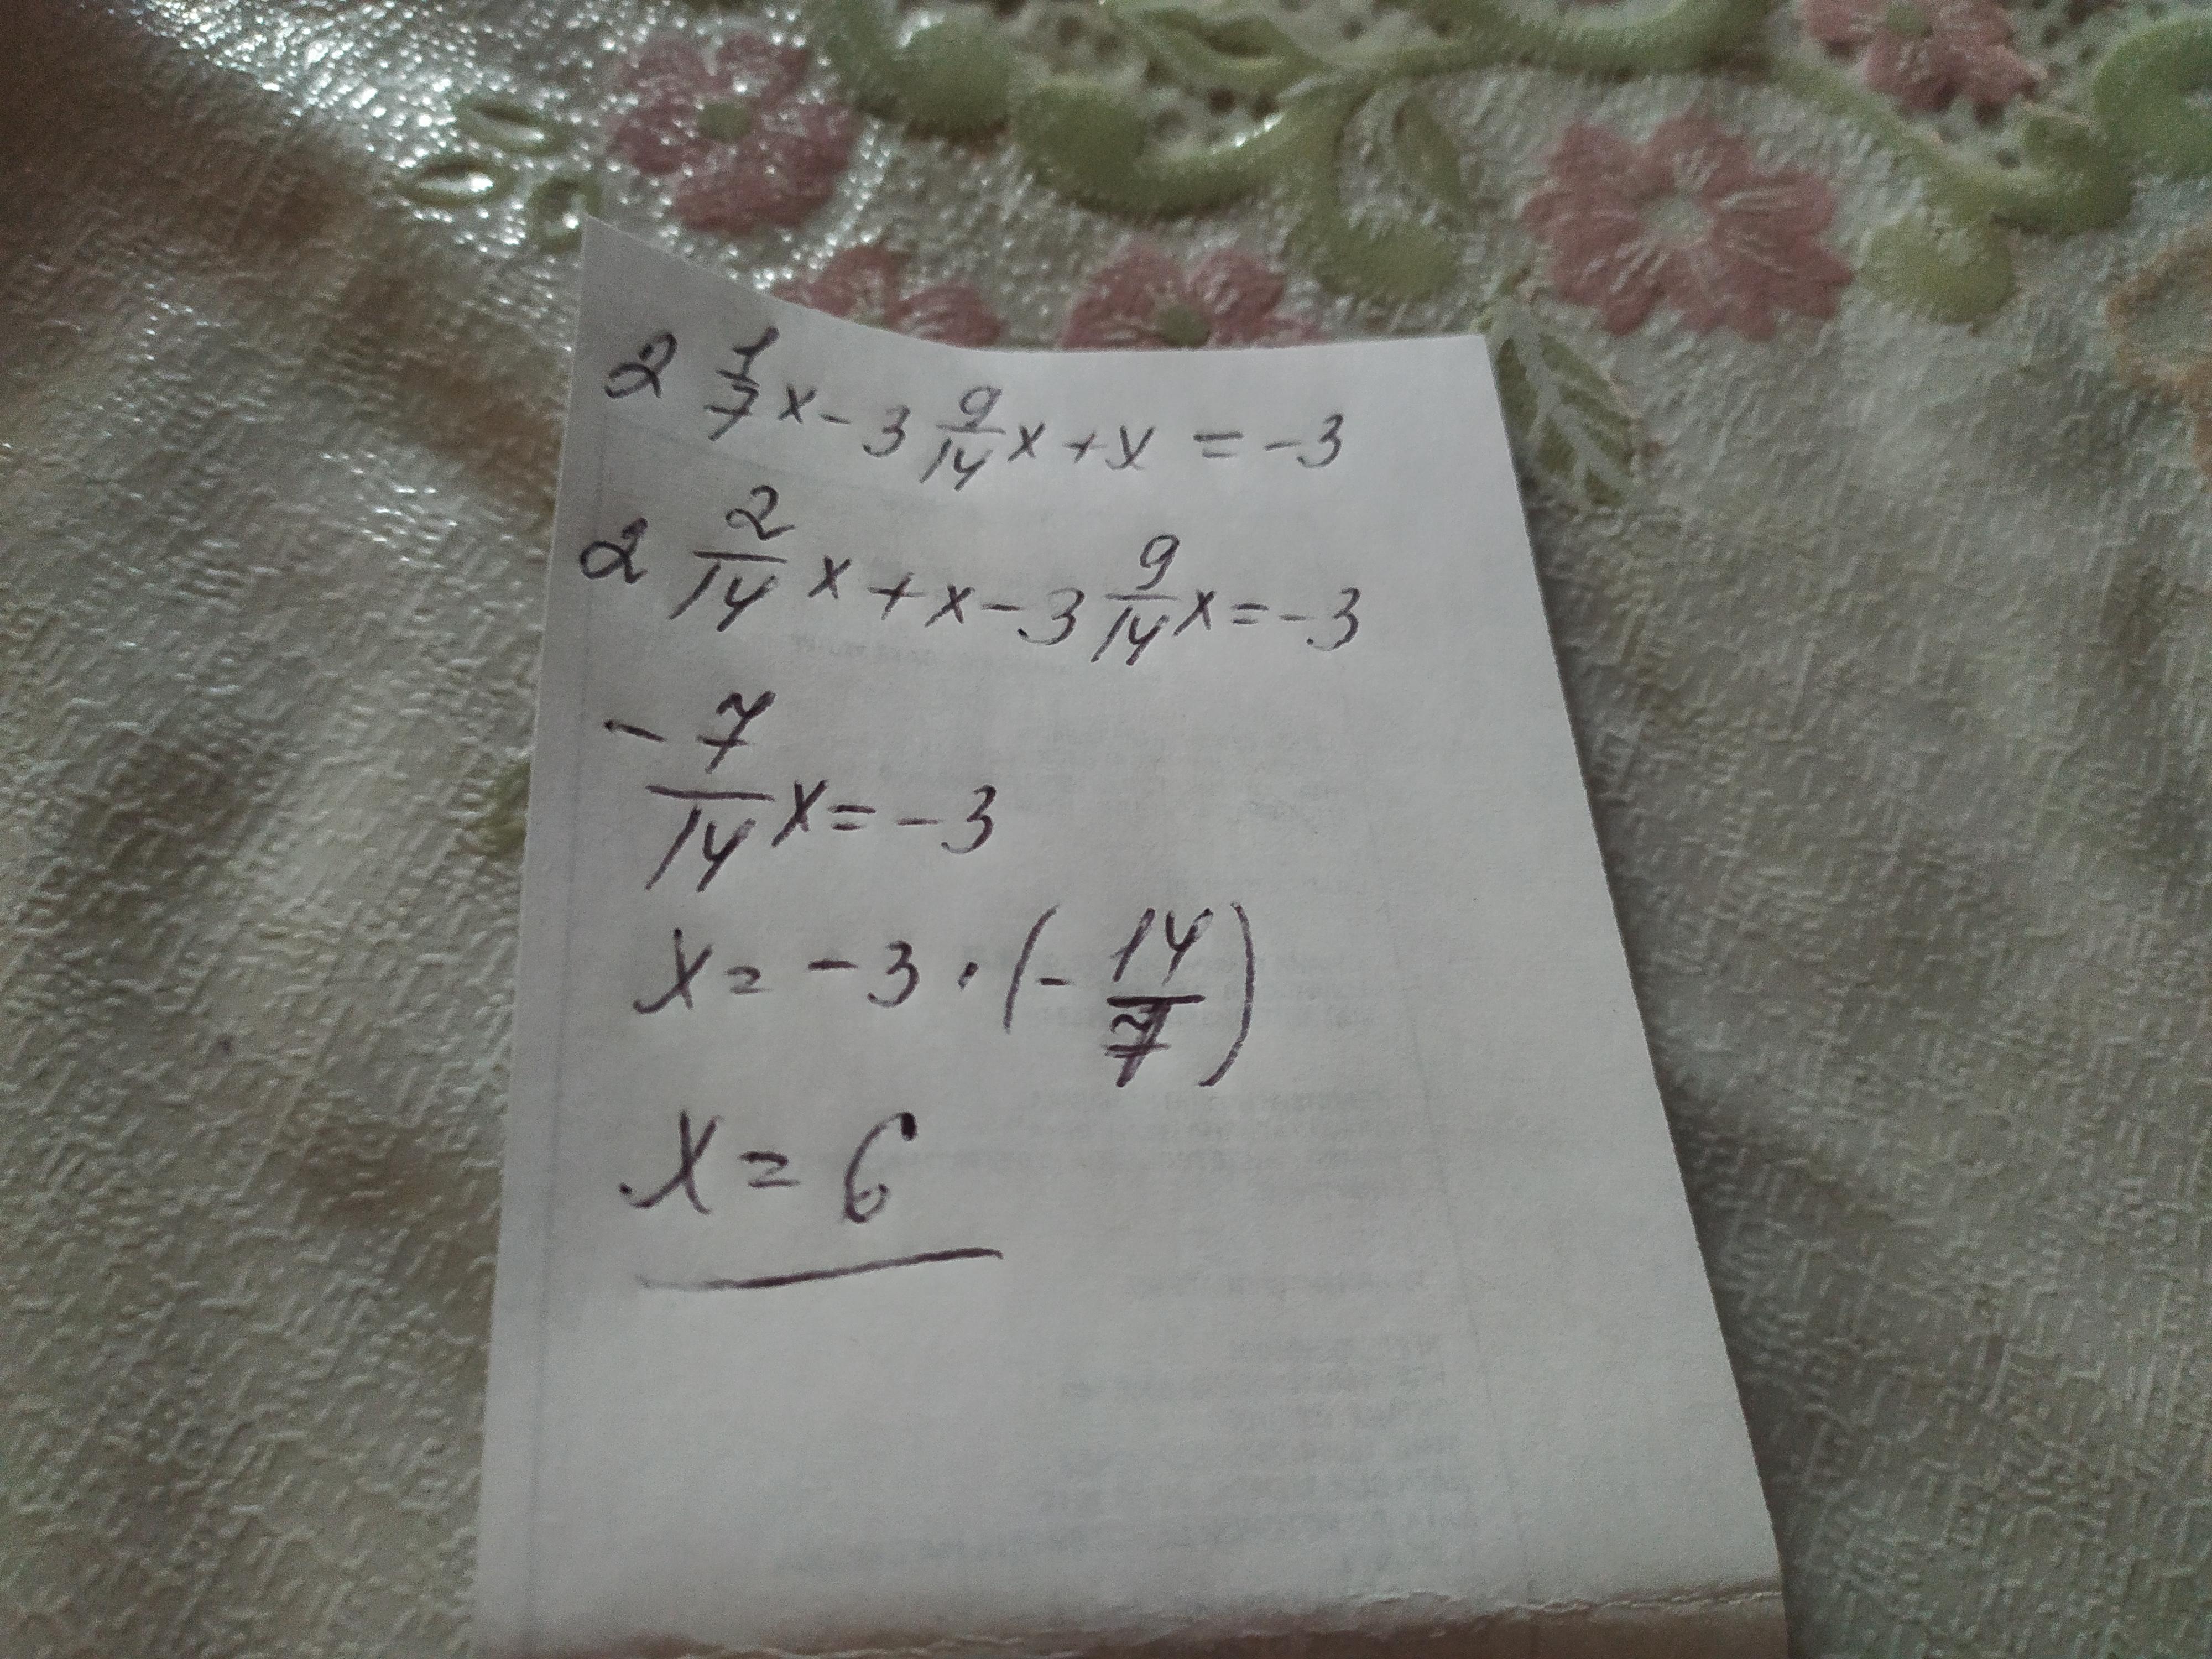 2 1/7 x - 3 9/14 x + x = -3
2 2/14 x + x - 3 9/14 x = -3
- 7/14 x = -3
x = -3 · (- 14/7)
x = 6